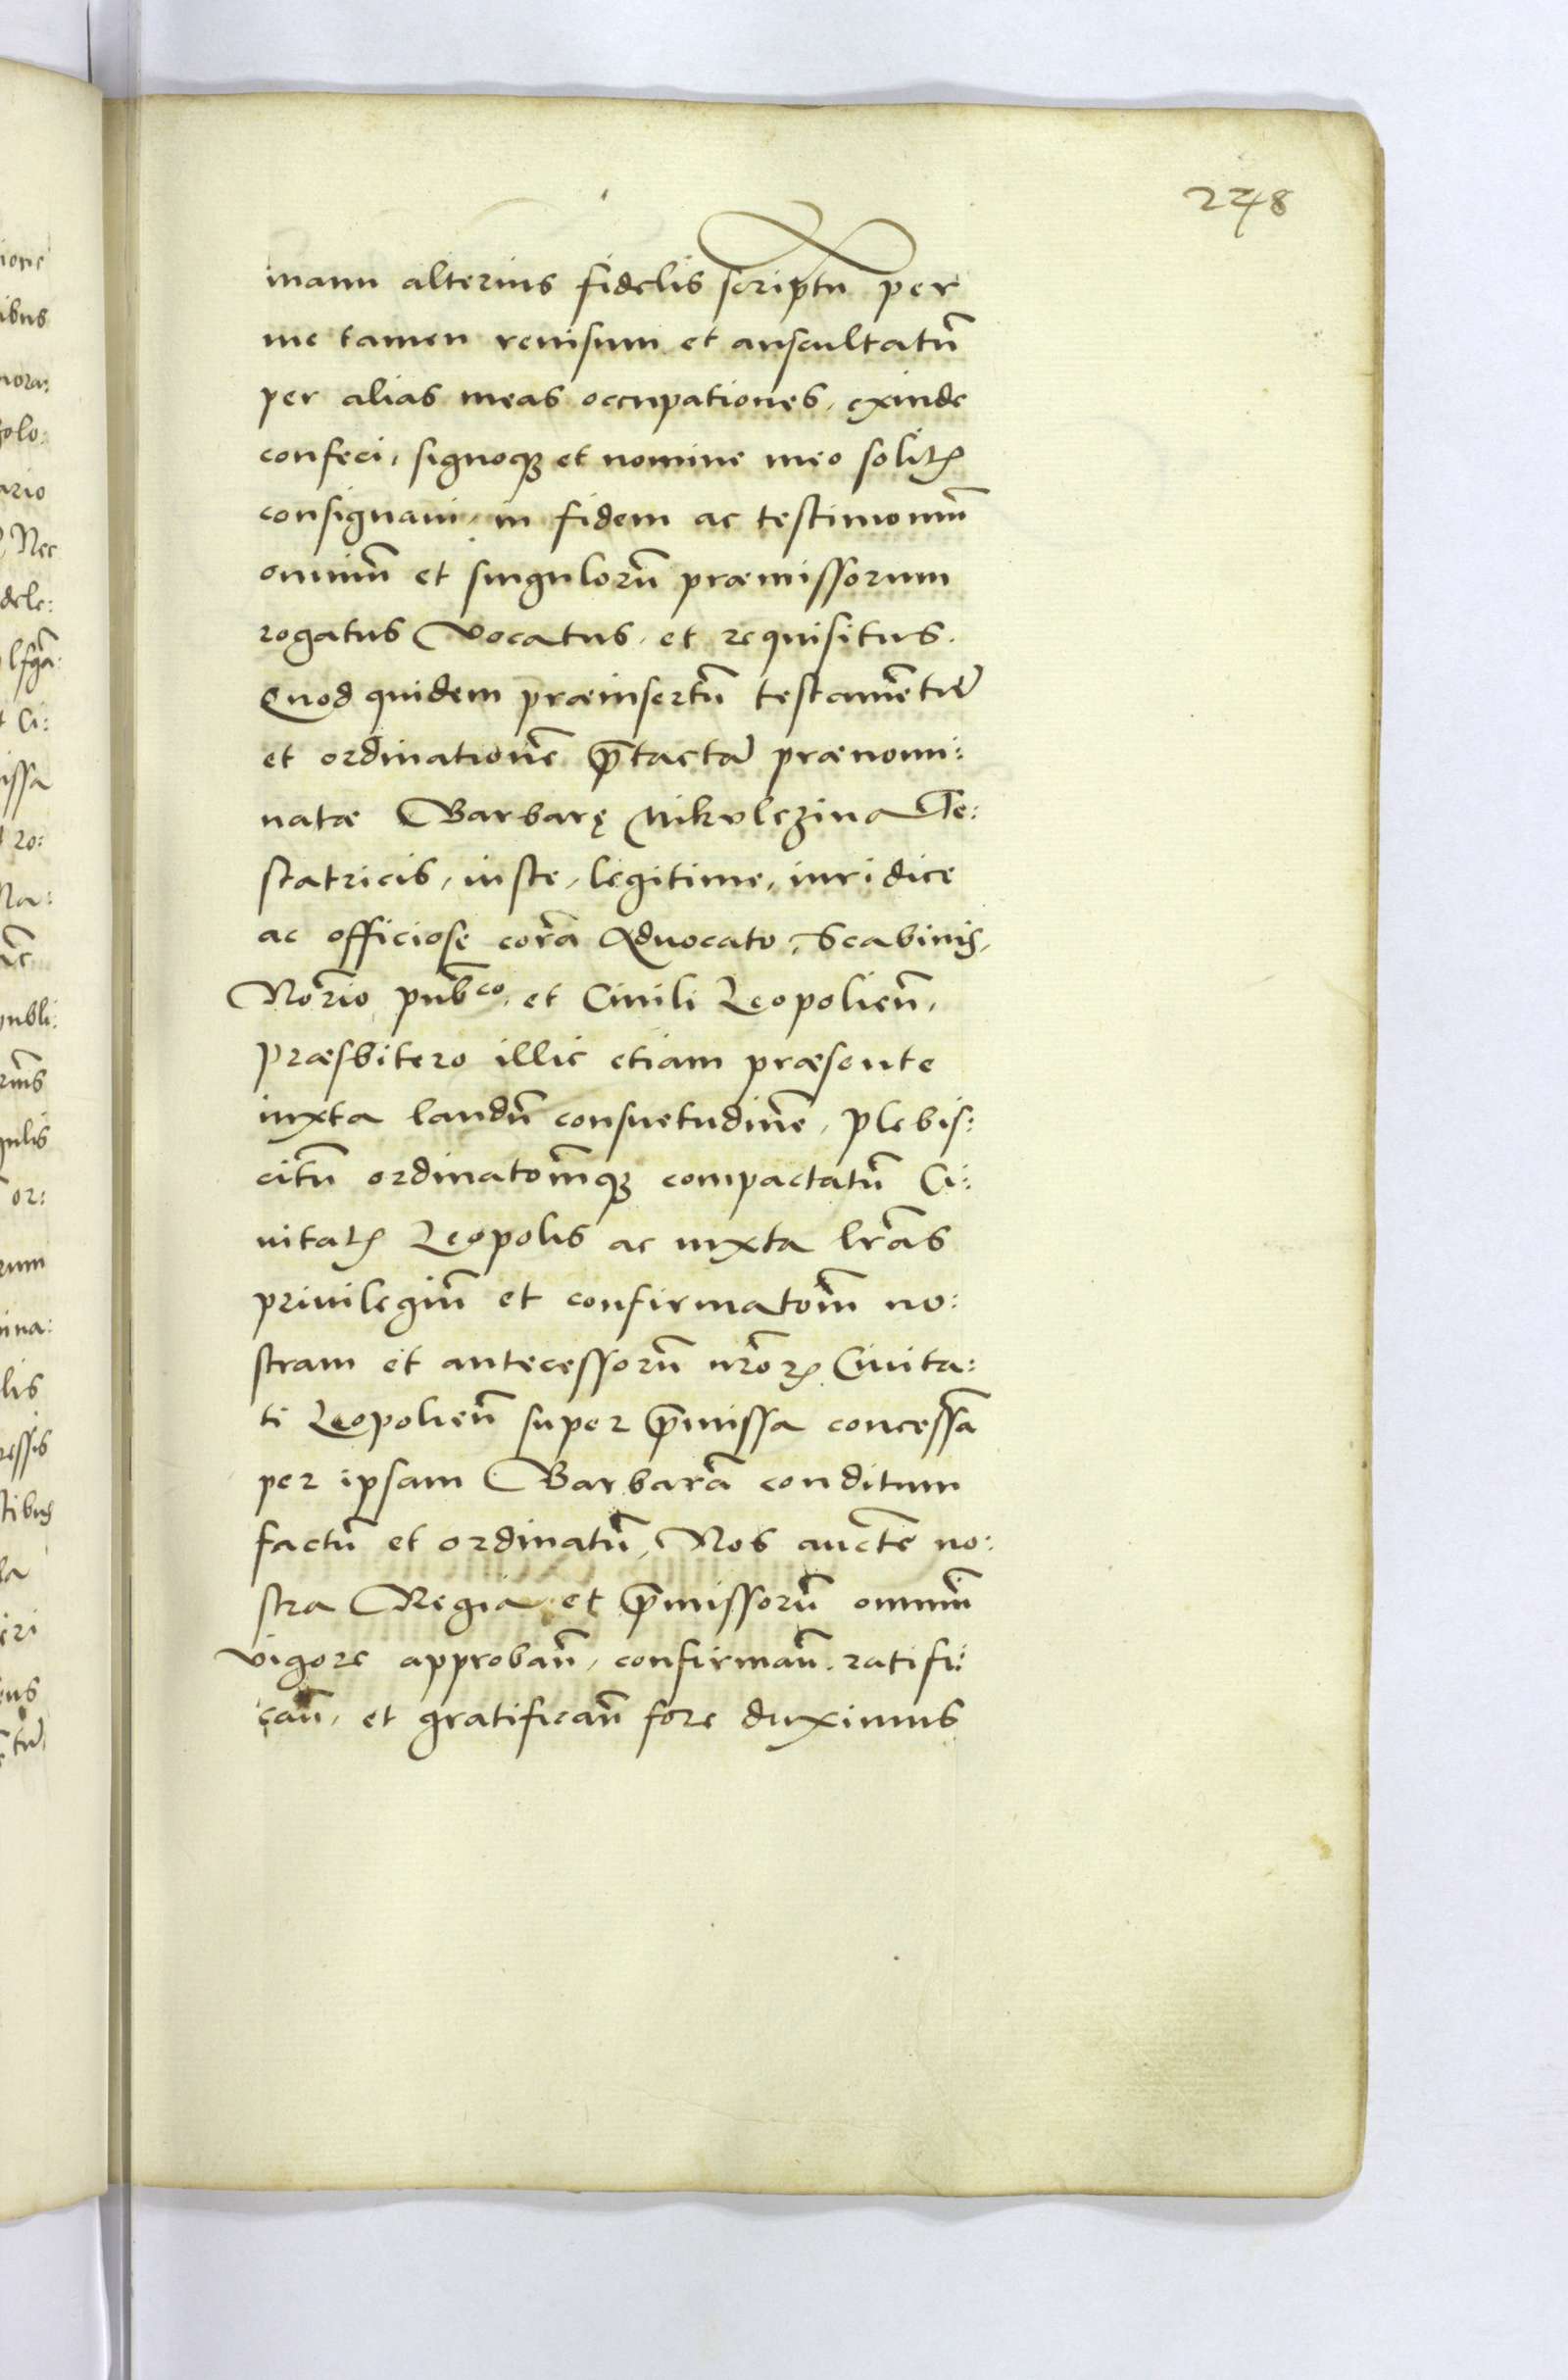 248
manu alterius fidelis scriptu per
me tamen reuisum et auscultatū
per alias meas occupationes, exinde
confeci, signoqꝫ et nomine meo solitꝭ
consignaui, in fidem ac testimoniū
omniū et singulorū præmissorum
rogatus vocatus, et requisitus.
Quod quidem præinsertū testamentū
et ordinationē p̄tactā prænomi:
natæ Barbarę Mikulczina Te:
statricis, iuste, legitime, iuridice
ac officiose corā Aduocato, Scabinis,
Norīo pub̄co, et Ciuili Leopolień,
Præsbitero illic etiam præsente
iuxta laudū consuetudinē, plebis:
citū ordinatōmqꝫ compactatū Ci:
uitatꝭ Leopolis ac iuxta lr̄as
priuilegiū et confirmatōm no:
stram et antecessorū nr̄oꝝ Ciuita:
ti Leopolień super p̄missa concessā
per ipsam Barbarā conditum
factū et ordinatū, Nos aucte no:
stra Regia et p̄missorū omniū
vigore approbań, confirmań, ratifi:
cań, et gratificań fore duximus
ione
ibus
mora:
polo:
ario
Nec
dele:
t Ci:
issa
ro:
Na:
publi:
gulis
or:
rum
mina:
lis
ressis
tibus
la
iri
ens